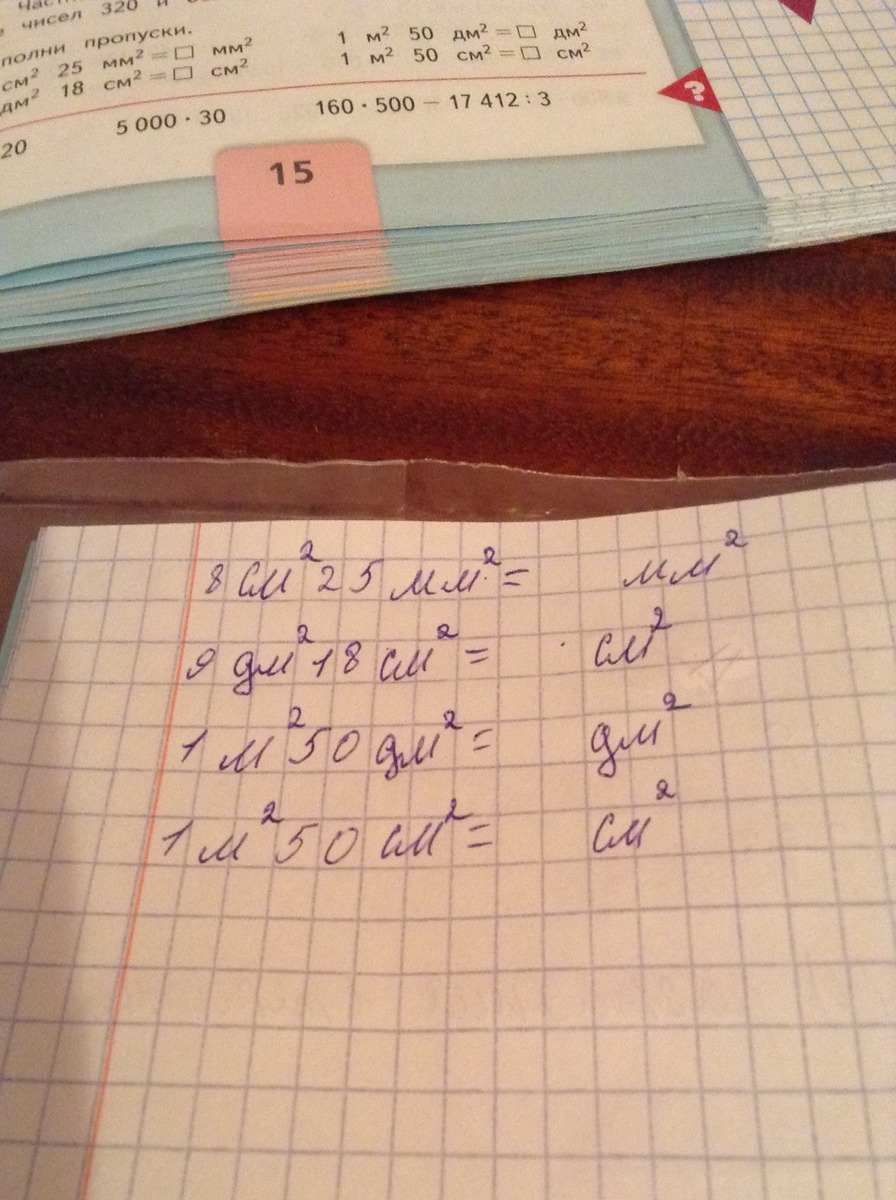 чисел 320 и
полни пропуски.
см² 25 мм² = □ мм²
дм² 18 см² = □ см²
1 м² 50 дм² = □ дм²
1 м² 50 см² = □ см²
20 5 000 · 30 160 · 500 − 17 412 : 3
?
15
8 см² 25 мм² = мм²
9 дм² 18 см² = см²
1 м² 50 дм² = дм²
1 м² 50 см² = см²